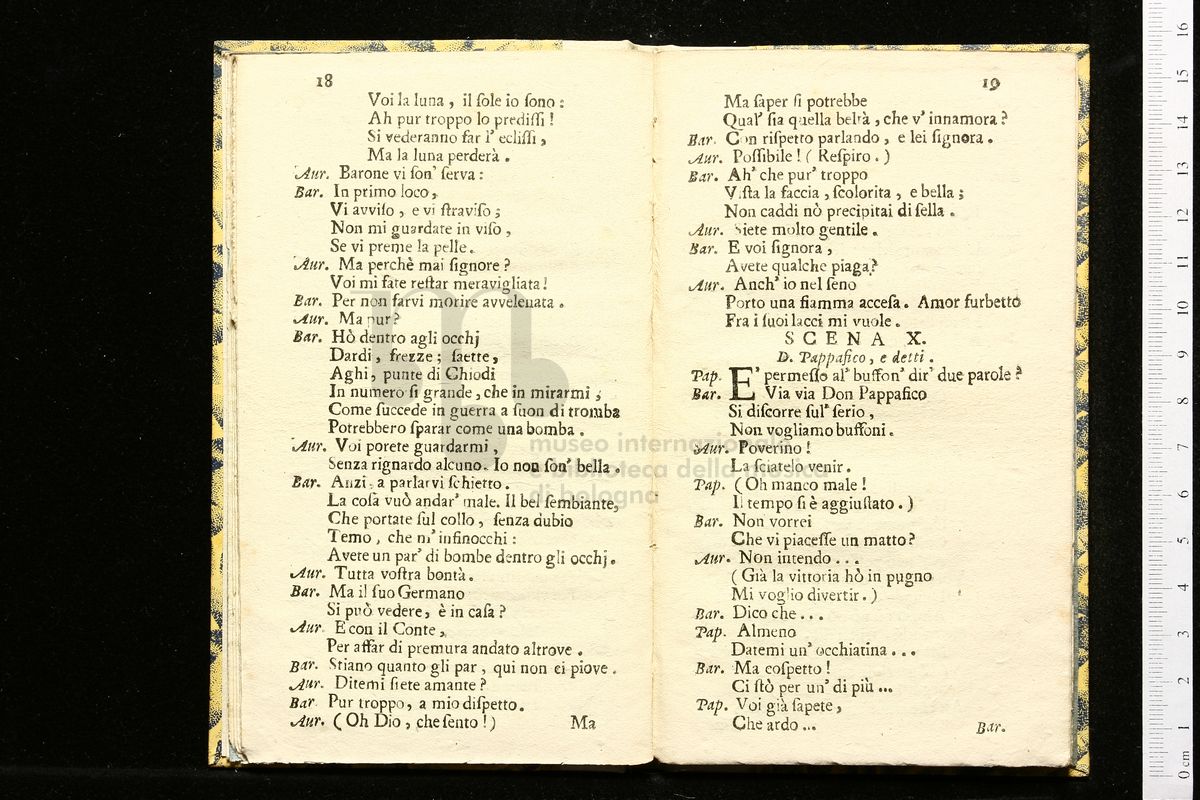 18
Voi la luna, il ſole io ſono:
Ah pur troppo lo prediſſi!
Si vederanno far l' ecliſſi,
Ma la luna perderà.
Aur. Barone vi ſon' ſerva:
Bar. In primo loco,
Vi avviſo, e vi ſtraviſo;
Non mi guardate in viſo,
Se vi preme la pelle.
Aur. Ma perchè mai ſignore?
Voi mi fate reſtar meravigliata!
Bar. Per non farvi morire avvelenata.
Aur. Ma pur?
Bar. Hò dentro agli occhj
Dardi, frezze; ſaette,
Aghi, punte di Chiodi
In numero ſi grande, che in mirarmi;
Come ſuccede in guerra a ſuon di tromba
Potrebbero ſparar come una bomba.
Aur. Voi potete guardarmi,
Senza rignardo alcuno. Io non ſon' bella.
Bar. Anzi a parlarvi ſchietto.
La coſa vuò andar' male. Il bel ſembiante,
Che portate ſul collo, ſenza dubio
Temo, che m' infinocchi:
Avete un par' di bombe dentro gli occhj.
Aur. Tutta voſtra bontà.
Bar. Ma il ſuo Germano
Si può vedere, è in caſa?
Aur. E con il Conte,
Per affar di premura andato altrove.
Bar. Stiano quanto gli par, qui non ci piove.
Aur. Ditemi ſiete amante?
Bar. Pur troppo, a mio diſpetto.
Aur. (Oh Dio, che ſento!)
Ma
19
Ma ſaper ſi potrebbe
Qual' ſia quella beltà, che v' innamora?
Bar. Con riſpetto parlando, e lei ſignora.
Aur. Poſſibile! (Reſpiro.)
Bar. Ah' che pur' troppo
Viſta la faccia, ſcolorita, e bella;
Non caddi nò precipitai di ſella.
Aur. Siete molto gentile.
Bar. E voi ſignora,
Avete qualche piaga?
Aur. Anch' io nel ſeno
Porto una fiamma acceſa. Amor furbetto
Fra i ſuoi lacci mi vuole.
SCENA X.
D. Pappafico, e detti.
Pap. E' permeſſo al' buffon' dir' due parole?
Bar. Via via Don Pappafico
Si diſcorre ſul' ſerio,
Non vogliamo buffoni.
Aur. Poverino!
Laſciatelo venir.
Pap. (Oh manco male!
Il tempo ſi è aggiuſtato.)
Bar. Non vorrei
Che vi piaceſſe un matto?
Aur. Non intendo...
(Già la vittoria hò in pugno
Mi voglio divertir.)
Bar. Dico che...
Pap. Almeno
Datemi un' occhiatina...
Bar. Ma coſpetto!
Ci ſtò per un' di più...
Pap. Voi già ſapete,
Che ardo...
Bar.
museo internazionale
e biblioteca della musica
di bologna
0 cm 1 2 3 4 5 6 7 8 9 10 11 12 13 14 15 16